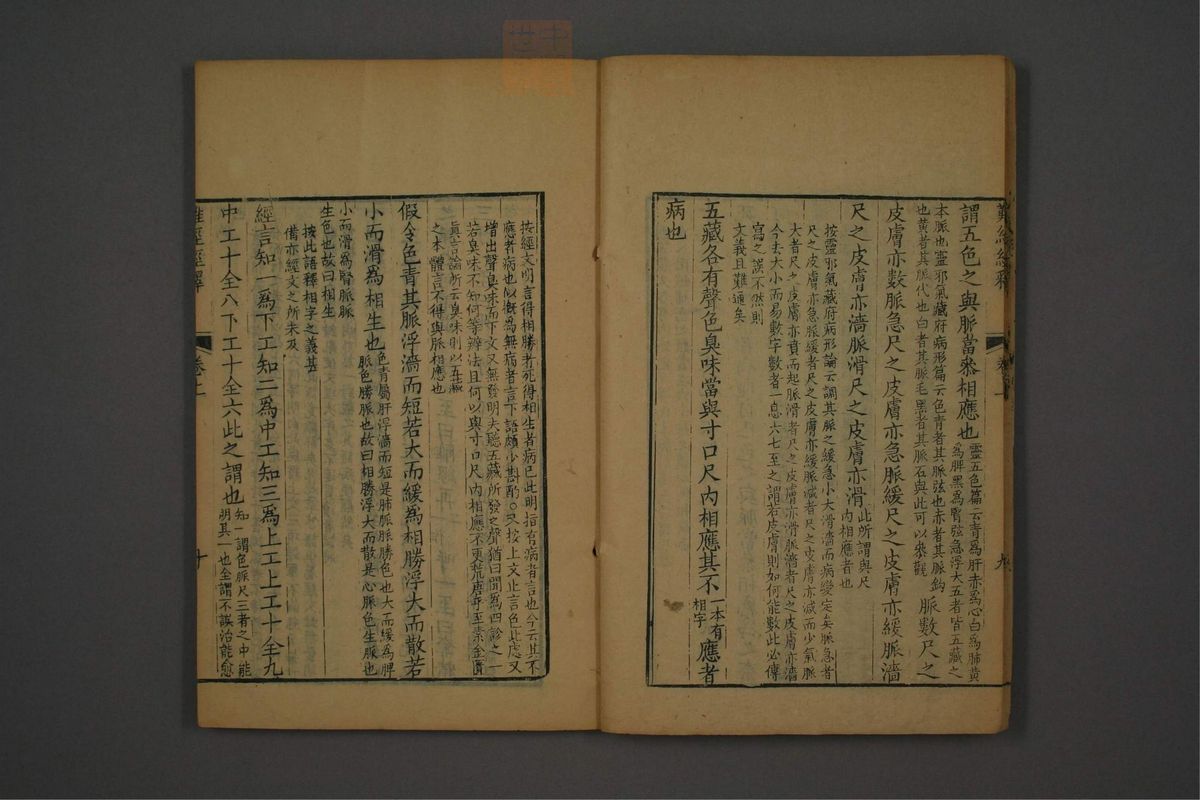 難經經釋
卷上
九
謂五色之與脈當參相應也
靈五色篇云青爲肝赤爲心白爲肺黃
爲脾黑爲腎弦急浮大五者皆五藏之
本脈也靈邪氣藏府病形篇云色青者其脈弦也赤者其脈鈎
也黃者其脈代也白者其脈毛黑者其脈石與此可以參觀
脈數尺之
皮膚亦數脈急尺之皮膚亦急脈緩尺之皮膚亦緩脈濇
尺之皮膚亦濇脈滑尺之皮膚亦滑
此所謂與尺
內相應者也
按靈邪氣藏府病形論云調其脈之緩急小大滑濇而病變定矣脈急者
尺之皮膚亦急脈緩者尺之皮膚亦緩脈小者尺之皮膚亦減而少氣脈
大者尺之皮膚亦賁而起脈滑者尺之皮膚亦滑脈濇者尺之皮膚亦濇
今去大小而易數字數者一息六七至之謂若皮膚則如何能數此必傳
寫之誤不然則
文義且難通矣
五藏各有聲色臭味當與寸口尺內相應其不
一本有
相字
應者
病也
按經文明言得相勝者死得相生者病已此明指有病者言也今云其不
應者病也似概爲無病者言下語頗少斟酌○又按上文止言色此處又
增出聲臭味而下文又無發明夫聽五藏所發之聲猶曰聞爲四診之一
若臭味不知何等辨法且何以與寸口尺內相應不更荒唐奇至素金匱
眞言論所云臭味則以五藏
之本體言不得與脈相應也
假令色青其脈浮濇而短若大而緩爲相勝浮大而散若
小而滑爲相生也
色青屬肝浮濇而短是肺脈脈勝色也大而緩爲脾
脈色勝脈也故曰相勝浮大而散是心脈色生脈也
小而滑爲腎脈脈
生色也故曰相生
按此語釋相字之義甚
備亦經文之所未及
經言知一爲下工知二爲中工知三爲上工上工十全九
中工十全八下工十全六此之謂也
知一謂色脈尺三者之中能
明其一也全謂不誤治能愈
難經經釋
卷上
十